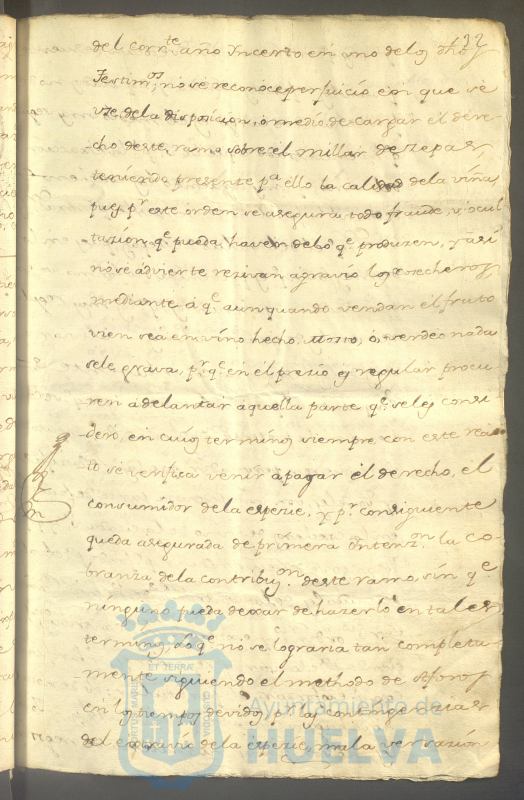 132
del corr.te año Incerto en uno delos dhos
Testim.os no se reconoce perjuicio en que se
use dela disposicion, ò medio de cargar el dere-
cho deste ramo sobre el millar de zepas
teniendo presente p.a ello la calidad dela viña
pues p.r este orden se asegura todo fraude, y ocul-
tazion q.e pueda haver delo q.e produzen, y asi
no se advierte rezivan agravio los cosecheros,
mediante à q.e aunquando vendan el fruto
vien sea en vino hecho, Mosto, ò, verdeo nada
sele grava, p.r q.e en el prezio es regular procu-
ren adelantar aquella parte q.e seles consi-
derò, en cuios terminos siempre con este rea-
to se verifica venir apagar el derecho, el
consumidor dela espezie, y p.r consiguiente
queda asegurada de primera Intenz.on la co-
branza dela contribuz.on deste ramo, sin q.e
ninguno pueda dexar de hazerlo en tales
terminos, Lo q.e no se lograria tan completa-
mente siguiendo el methodo de Aforos
en los tiempos devidos, p.r las contingencias
del extravio dela espezie, mala versazion
PORTUS MARIS ET TERRAE CUSTODIA
Ayuntamiento de
HUELVA